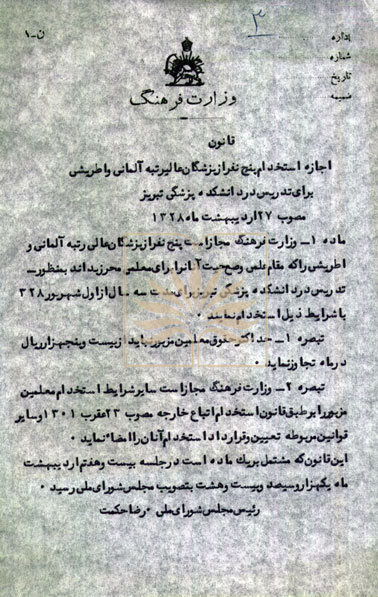 ن-۱
۳
اداره
شماره
تاریخ
ضمیمه
وزارت فرهنگ
قانون
اجازه استخدام پنج نفر از پزشگان عالیرتبه آلمانی و اطریشی
برای تدریس در دانشکده پزشکی تبریز
مصوب ۲۷ اردیبهشت ماه ۱۳۲۸
ماده ۱ـ وزارت فرهنگ مجاز است پنج نفر از پزشگان عالی رتبه آلمانی و
اطریشی را که مقام علمی و صحیت آنان برای معلمی محرز بداند بمنظور ـ
تدریس در دانشکده پزشکی تبریز برای مدت سه سال از اول شهریور ۳۲۸
با شرایط ذیل استخدام نماید ۰
تبصره ۱ـ حداکثر حقوق معلمین مزبور نباید از بیست و پنجهزار ریال
در ماه تجاوز نماید ۰
تبصره ۲ـ وزارت فرهنگ مجاز است سایر شرایط استخدام معلمین
مزبور را بر طبق قانون استخدام اتباع خارجه مصوب ۲۳ عقرب ۱۳۰۱ و سایر
قوانین مربوطه تعیین و قرارداد استخدام آنان را امضا نماید ۰
این قانون که مشتمل بر یک ماده است در جلسه بیست و هفتم اردیبهشت
ماه یکهزار و سیصد و بیست و هشت بتصویب مجلس شورای ملی رسید ۰
رئیس مجلس شورای ملی ۰ رضا حکمت